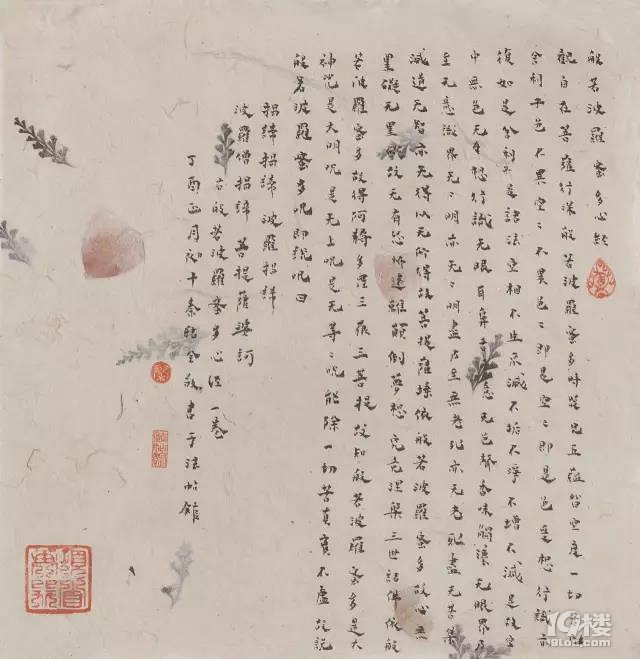 般若波羅蜜多心經
觀自在菩薩行深般若波羅蜜多時照見五蘊皆空度一切苦厄
舍利子色不異空〻不異色〻即是空〻即是色受想行識亦
復如是舍利子是諸法空相不生不滅不垢不淨不增不減是故空
中無色无受想行識无眼耳鼻舌身意无色聲香味觸法无眼界乃
至无意識界无〻明亦无〻明盡乃至無老死亦无老死盡无苦集
滅道无智亦无得以无所得故菩提薩埵依般若波羅蜜多故心无
罣礙无罣礙故无有恐怖遠離顛倒夢想究竟涅槃三世諸佛依般
若波羅蜜多故得阿耨多羅三藐三菩提故知般若波羅蜜多是大
神咒是大明咒是无上咒是无等〻咒能除一切苦真實不虛故說
般若波羅蜜多咒即說咒曰
揭諦揭諦波羅揭諦
波羅僧揭諦菩提薩婆訶
右般若波羅蜜多心經一卷
丁酉正月初十秦全敬書于法帖館
19楼